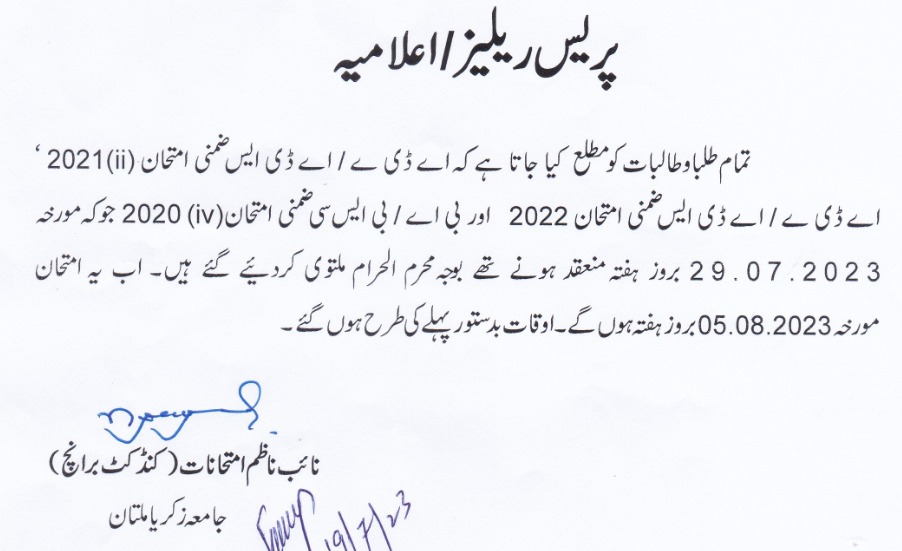 پریس ریلیز/اعلامیہ
تمام طلبا و طالبات کو مطلع کیا جاتا ہے کہ اے ڈی اے / اے ڈی ایس ضمنی امتحان 2021(ii) ،
اے ڈی اے / اے ڈی ایس ضمنی امتحان 2022 اور بی اے / بی ایس سی ضمنی امتحان(iv) 2020 جو کہ مورخہ
29.07.2023 بروز ہفتہ منعقد ہونے تھے بوجہ محرم الحرام ملتوی کر دیئے گئے ہیں۔ اب یہ امتحان
مورخہ 05.08.2023 بروز ہفتہ ہوں گے۔ اوقات بدستور پہلے کی طرح ہوں گئے۔
نائب ناظم امتحانات (کنڈکٹ برانچ)
جامعہ زکریا ملتان
19/7/23